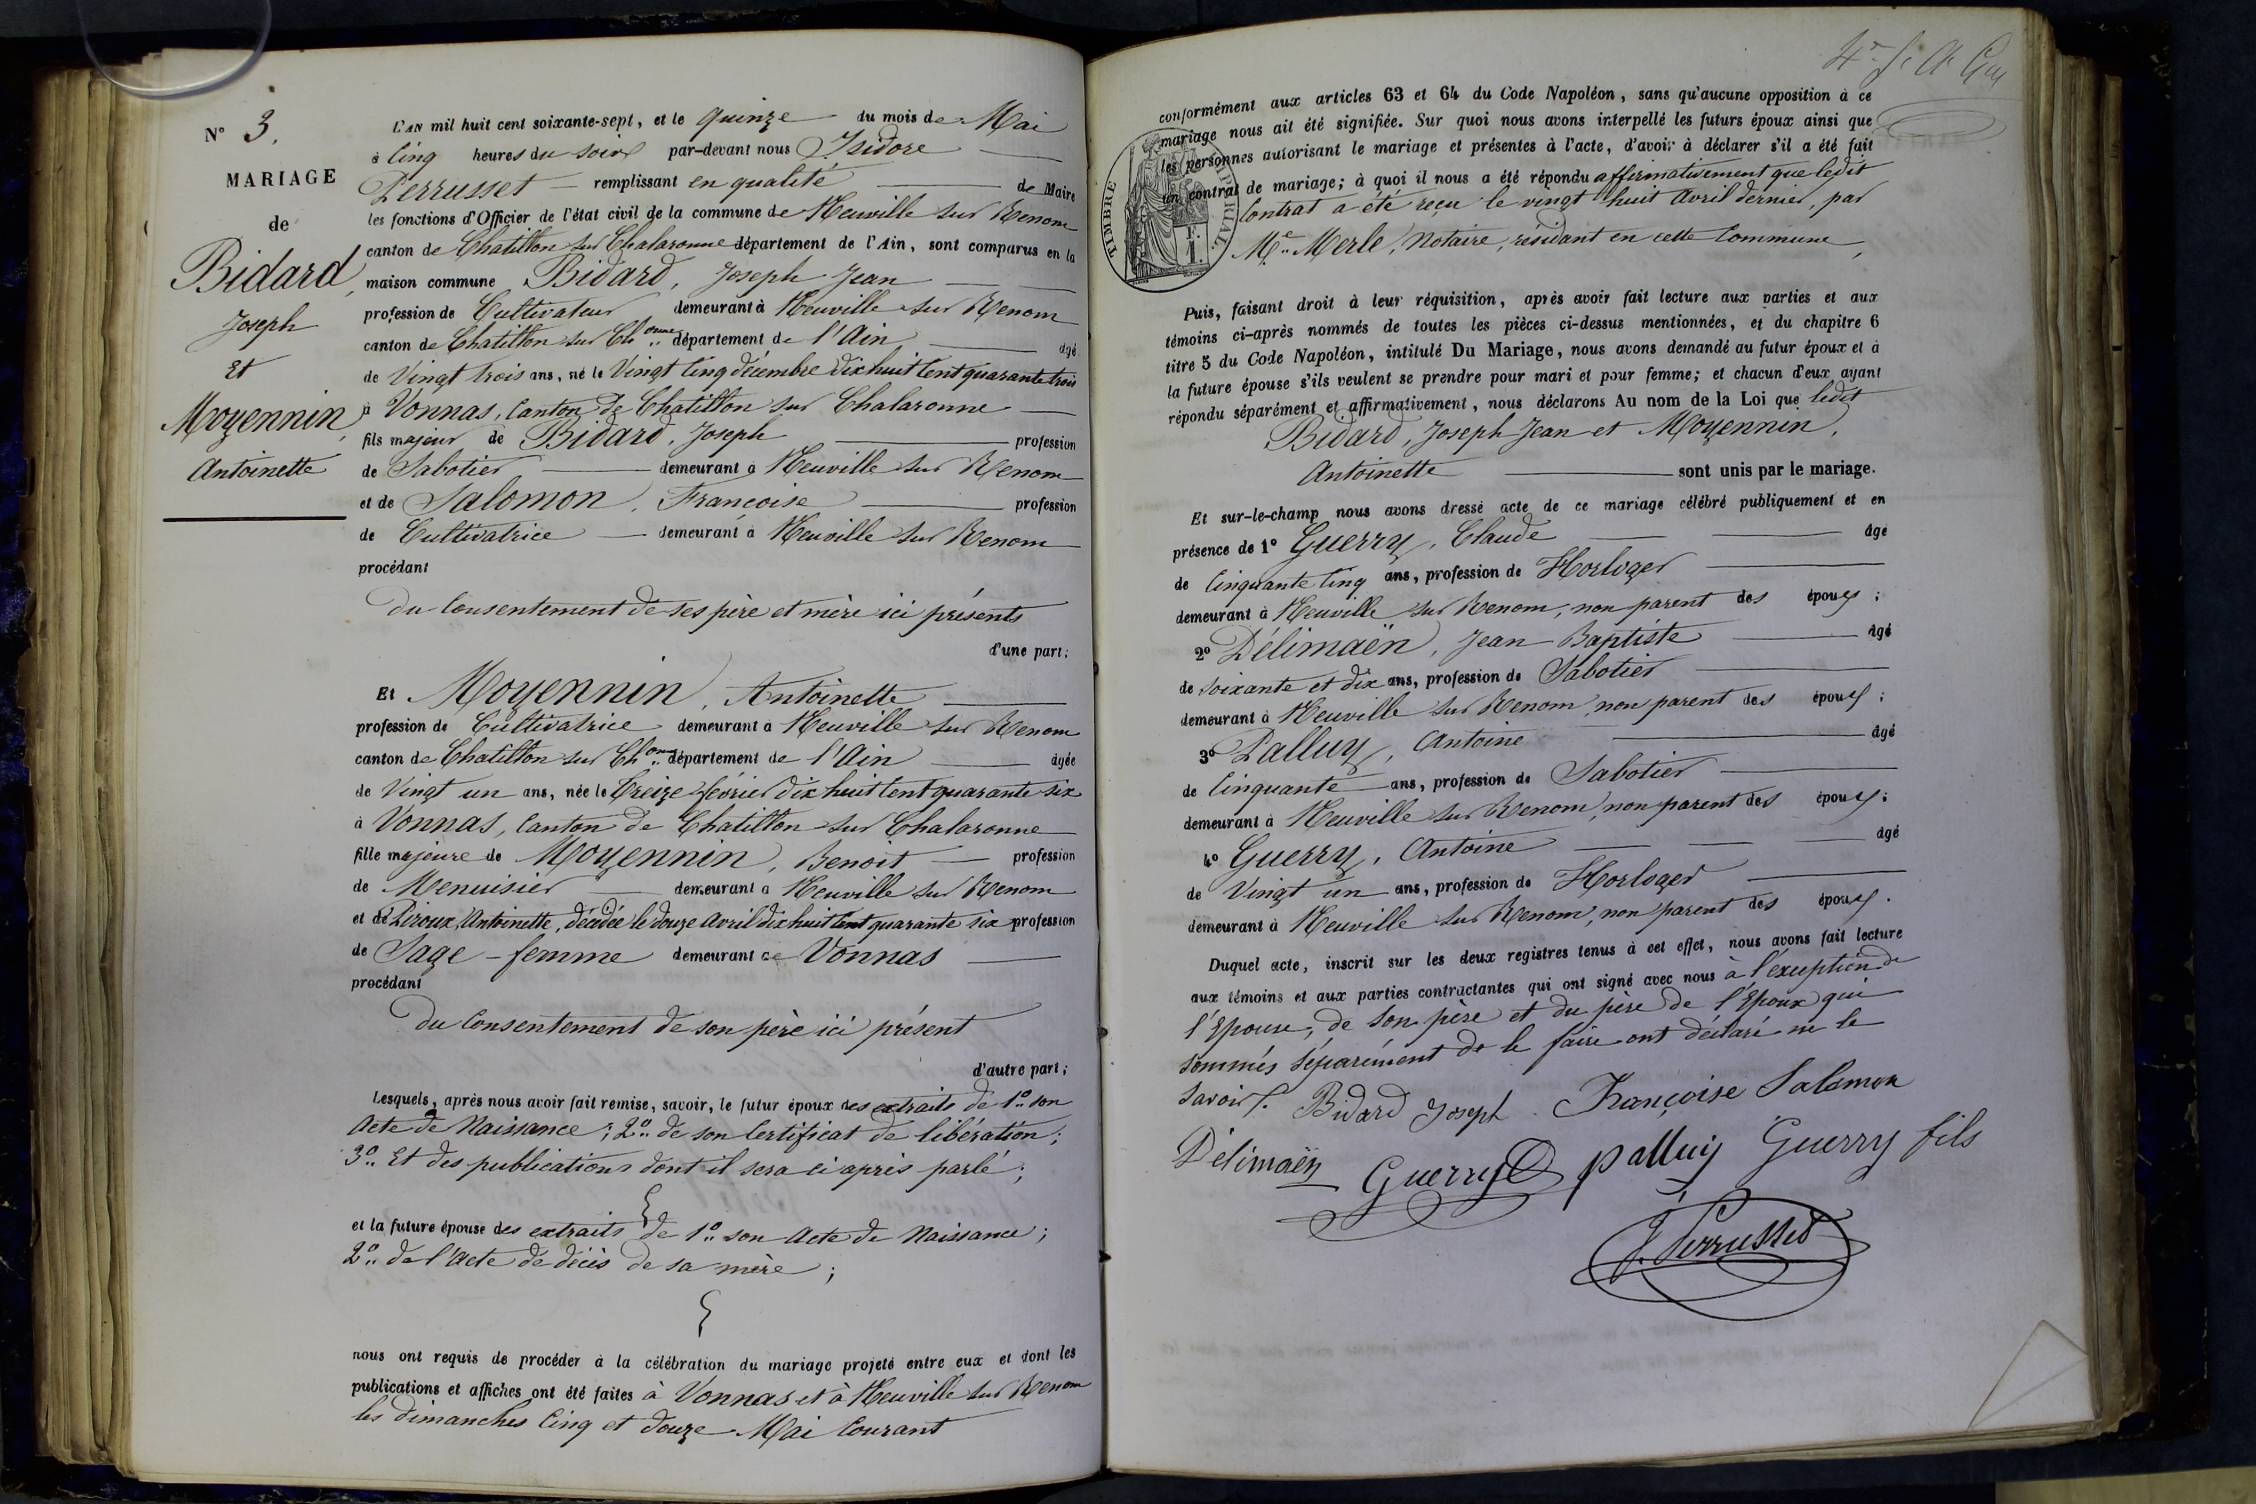 N° 3.
MARIAGE
de
Bidard,
Joseph
Et
Moyennin,
Antoinette
L'AN mil huit cent soixante-sept, et le quinze du mois de Mai
à Cinq heures du soir par-devant nous Isidore
Perrusset remplissant en qualité de Maire
les fonctions d'Officier de l'état civil de la commune de Neuville sur Renom
canton de Chatillon sur Chalaronne département de l'Ain, sont comparus en la
maison commune Bidard, Joseph Jean
profession de Cultivateur demeurant à Neuville sur Renom
canton de Chatillon sur Ch^onne département de l'Ain âgé
de Vingt trois ans, né le Vingt Cinq décembre dix huit Cent quarante trois
à Vonnas, Canton de Chatillon sur Chalaronne
fils majeur de Bidard, Joseph profession
de Sabotier demeurant à Neuville sur Renom
et de Salomon, Françoise profession
de Cultivatrice demeurant à Neuville sur Renom
procédant
du Consentement de ses père et mère ici présents
d'une part;
Et Moyennin, Antoinette
profession de Cultivatrice demeurant à Neuville sur Renom
canton de Chatillon sur Ch^onne département de l'Ain âgée
de Vingt un ans, née le Treize février dix huit Cent quarante six
à Vonnas, Canton de Chatillon sur Chalaronne
fille majeure de Moyennin, Benoit profession
de Menuisier demeurant à Neuville sur Renom
et de Piroux, Antoinette, décédée le douze Avril dix huit Cent quarante six profession
de Sage-femme demeurant à Vonnas
procédant
du Consentement de son père ici présent
d'autre part;
Lesquels, après nous avoir fait remise, savoir, le futur époux des extraits de 1° son
Acte de Naissance; 2° de son Certificat de libération;
3° Et des publications dont il sera ci après parlé;
et la future épouse des extraits de 1° son Acte de Naissance;
2° de l'Acte de décès de sa mère;
nous ont requis de procéder à la célébration du mariage projeté entre eux et dont les
publications et affiches ont été faites à Vonnas et à Neuville sur Renom
les dimanches Cinq et douze Mai Courant
conformément aux articles 63 et 64 du Code Napoléon, sans qu'aucune opposition à ce
mariage nous ait été signifiée. Sur quoi nous avons interpellé les futurs époux ainsi que
les personnes autorisant le mariage et présentes à l'acte, d'avoir à déclarer s'il a été fait
un contrat de mariage; à quoi il nous a été répondu affirmativement que ledit
Contrat a été reçu le vingt huit Avril dernier, par
M^e Merle, Notaire, résidant en cette Commune,
TIMBRE IMPÉRIAL
1 F.
Puis, faisant droit à leur réquisition, après avoir fait lecture aux parties et aux
témoins ci-après nommés de toutes les pièces ci-dessus mentionnées, et du chapitre 6
titre 5 du Code Napoléon, intitulé Du Mariage, nous avons demandé au futur époux et à
la future épouse s'ils veulent se prendre pour mari et pour femme; et chacun d'eux ayant
répondu séparément et affirmativement, nous déclarons Au nom de la Loi que ledit
Bidard, Joseph Jean et Moyennin,
Antoinette sont unis par le mariage.
Et sur-le-champ nous avons dressé acte de ce mariage célébré publiquement et en
présence de 1° Guerry, Claude âgé
de Cinquante Cinq ans, profession de Horloger
demeurant à Neuville sur Renom, non parent des époux;
2° Délimaën, Jean Baptiste âgé
de soixante et dix ans, profession de Sabotier
demeurant à Neuville sur Renom, non parent des époux;
3° Palluy, Antoine âgé
de Cinquante ans, profession de Sabotier
demeurant à Neuville sur Renom, non parent des époux;
4° Guerry, Antoine âgé
de Vingt un ans, profession de Horloger
demeurant à Neuville sur Renom, non parent des époux.
Duquel acte, inscrit sur les deux registres tenus à cet effet, nous avons fait lecture
aux témoins et aux parties contractantes qui ont signé avec nous à l'exception de
l'Epouse, de son père et du père de l'Epoux qui
sommés séparément de le faire ont déclaré ne le
savoir.
Bidard Joseph Françoise Salomon
Délimaën Guerry palluy Guerry fils
J. Perrusset